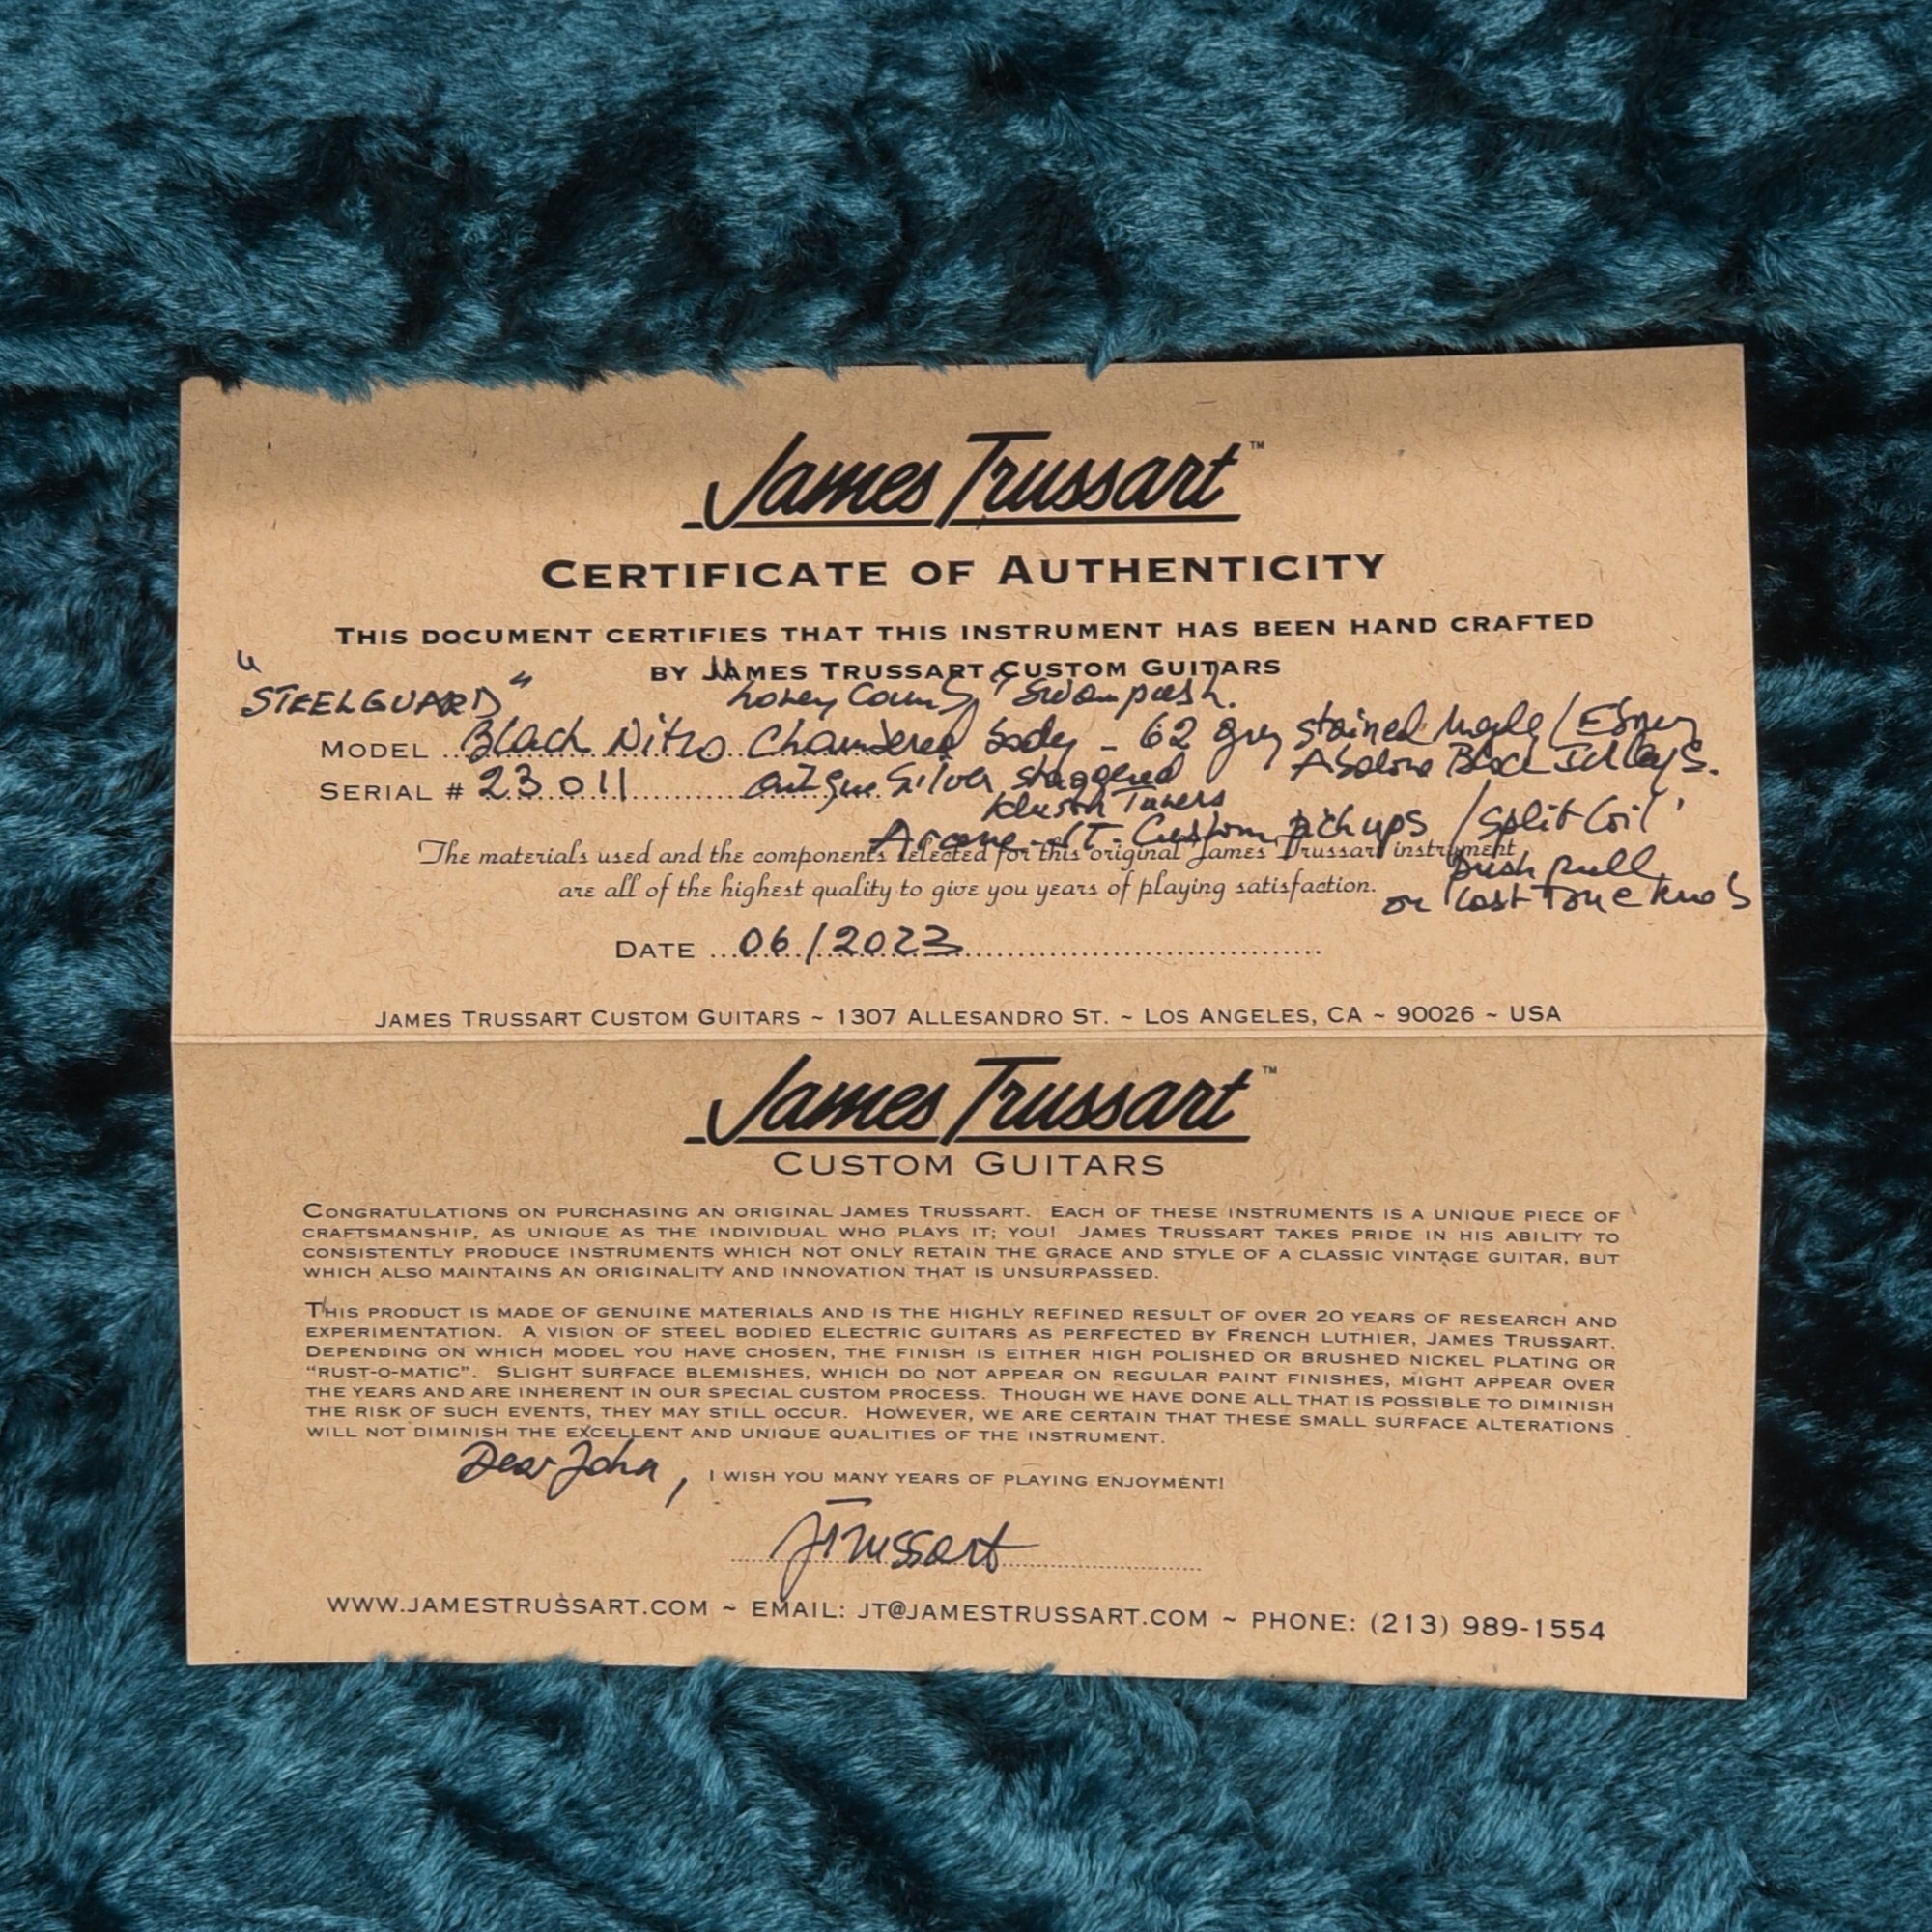 James Trussart™
CERTIFICATE OF AUTHENTICITY
THIS DOCUMENT CERTIFIES THAT THIS INSTRUMENT HAS BEEN HAND CRAFTED
BY JAMES TRUSSART CUSTOM GUITARS
"STEELGUARD"
Swampash.
MODEL Black Nitro Chambered body - 62 grey stained Maple / Ebony
Block Inlays.
SERIAL # 23011
Silver staggered
Tuners
Arcane JT Custom pickups / Split Coil
The materials used and the components selected for this original James Trussart instrument
push pull
are all of the highest quality to give you years of playing satisfaction.
on last Tone knob
DATE 06/2023
JAMES TRUSSART CUSTOM GUITARS ~ 1307 ALLESANDRO ST. ~ LOS ANGELES, CA ~ 90026 ~ USA
James Trussart™
CUSTOM GUITARS
CONGRATULATIONS ON PURCHASING AN ORIGINAL JAMES TRUSSART. EACH OF THESE INSTRUMENTS IS A UNIQUE PIECE OF
CRAFTSMANSHIP, AS UNIQUE AS THE INDIVIDUAL WHO PLAYS IT; YOU! JAMES TRUSSART TAKES PRIDE IN HIS ABILITY TO
CONSISTENTLY PRODUCE INSTRUMENTS WHICH NOT ONLY RETAIN THE GRACE AND STYLE OF A CLASSIC VINTAGE GUITAR, BUT
WHICH ALSO MAINTAINS AN ORIGINALITY AND INNOVATION THAT IS UNSURPASSED.
THIS PRODUCT IS MADE OF GENUINE MATERIALS AND IS THE HIGHLY REFINED RESULT OF OVER 20 YEARS OF RESEARCH AND
EXPERIMENTATION. A VISION OF STEEL BODIED ELECTRIC GUITARS AS PERFECTED BY FRENCH LUTHIER, JAMES TRUSSART.
DEPENDING ON WHICH MODEL YOU HAVE CHOSEN, THE FINISH IS EITHER HIGH POLISHED OR BRUSHED NICKEL PLATING OR
"RUST-O-MATIC". SLIGHT SURFACE BLEMISHES, WHICH DO NOT APPEAR ON REGULAR PAINT FINISHES, MIGHT APPEAR OVER
THE YEARS AND ARE INHERENT IN OUR SPECIAL CUSTOM PROCESS. THOUGH WE HAVE DONE ALL THAT IS POSSIBLE TO DIMINISH
THE RISK OF SUCH EVENTS, THEY MAY STILL OCCUR. HOWEVER, WE ARE CERTAIN THAT THESE SMALL SURFACE ALTERATIONS
WILL NOT DIMINISH THE EXCELLENT AND UNIQUE QUALITIES OF THE INSTRUMENT.
Dear John, I WISH YOU MANY YEARS OF PLAYING ENJOYMENT!
JTrussart
WWW.JAMESTRUSSART.COM ~ EMAIL: JT@JAMESTRUSSART.COM ~ PHONE: (213) 989-1554